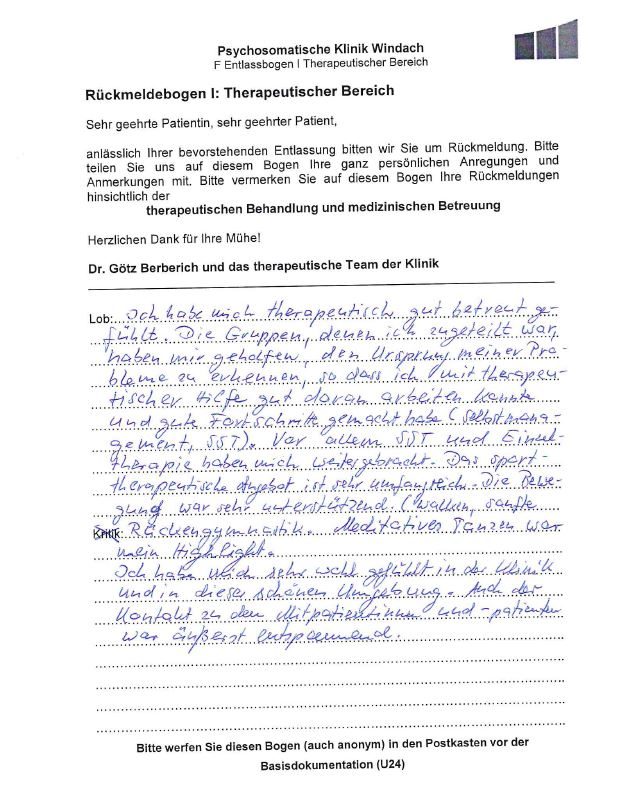 Psychosomatische Klinik Windach
F Entlassbogen I Therapeutischer Bereich
Rückmeldebogen I: Therapeutischer Bereich
Sehr geehrte Patientin, sehr geehrter Patient,
anlässlich Ihrer bevorstehenden Entlassung bitten wir Sie um Rückmeldung. Bitte
teilen Sie uns auf diesem Bogen Ihre ganz persönlichen Anregungen und
Anmerkungen mit. Bitte vermerken Sie auf diesem Bogen Ihre Rückmeldungen
hinsichtlich der
therapeutischen Behandlung und medizinischen Betreuung
Herzlichen Dank für Ihre Mühe!
Dr. Götz Berberich und das therapeutische Team der Klinik
Lob: Ich habe mich therapeutisch gut betreut ge-
fühlt. Die Gruppen, denen ich zugeteilt war,
haben mir geholfen, den Ursprung meiner Pro-
bleme zu erkennen, so dass ich mit therapeu-
tischer Hilfe gut daran arbeiten konnte
und gute Fortschritte gemacht habe (Selbstmana-
gement, SST). Vor allem SST und Einzel-
therapie haben mich weitergebracht. Das sport-
therapeutische Angebot ist sehr umfangreich. Die Bewe-
gung war sehr unterstützend (Walken, sanfte
Kritik: Rückengymnastik. Meditatives Tanzen war
mein Highlight.
Ich habe mich sehr wohl gefühlt in der Klinik
und in dieser schönen Umgebung. Auch der
Kontakt zu den Mitpatientinnen und -patienten
war äußerst entspannend.
Bitte werfen Sie diesen Bogen (auch anonym) in den Postkasten vor der
Basisdokumentation (U24)